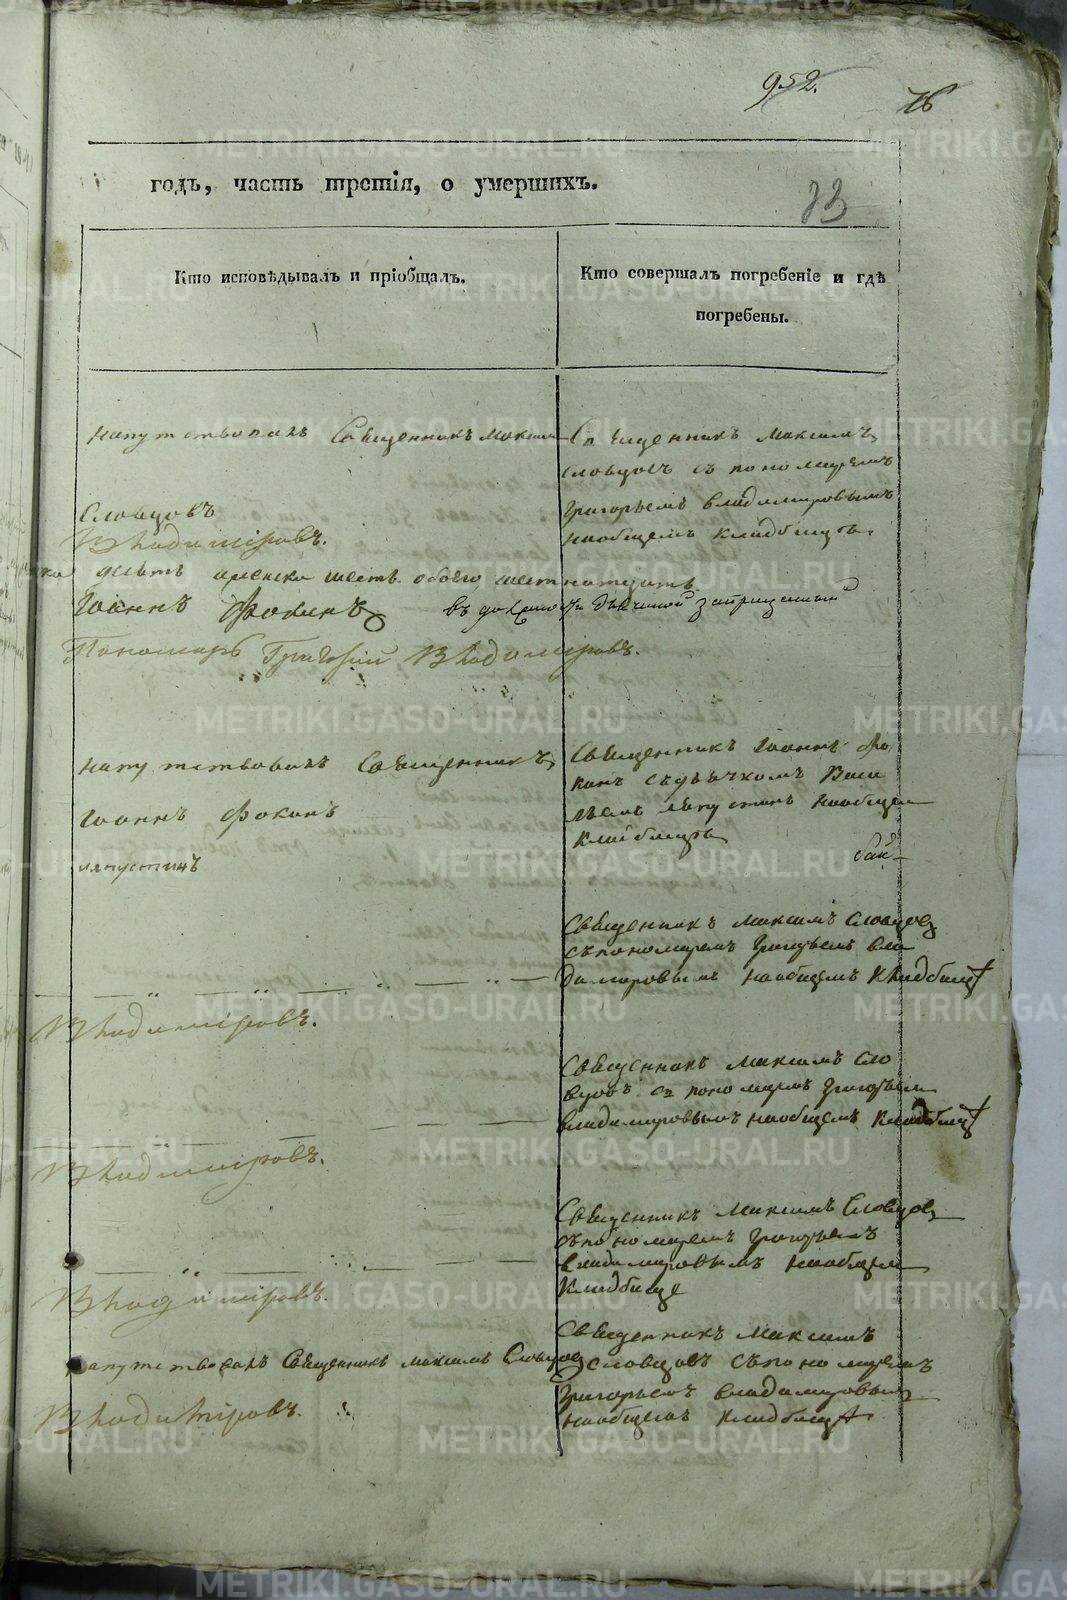 952.
76
33
годъ, часть третія, о умершихъ.
Кто исповѣдывалъ и пріобщалъ.
Кто совершалъ погребеніе и гдѣ
погребены.
Напутствовалъ Священникъ Максим
Словцовъ
Священникъ Максимъ
Словцовъ съ пономаремъ
Григорьемъ Владимировымъ
наобщемъ кладбищѣ.
Владиміровъ.
девять женска шесть обоего
Іоаннъ Фокинъ въ должности
Пономарь Григорій Владиміровъ.
Напутствовалъ Священникъ
Іоаннъ Фокинъ
Лапустинъ
Священникъ Іоаннъ Фо
кинъ съдьячкомъ Васи
льемъ Лапустинъ наобщем
кладбищѣ
Священникъ Максимъ Словцов
съпономаремъ Григорьемъ Вла
димировымъ наобщемъ кладбищѣ
Владиміровъ.
Священникъ Максимъ Сло
вцовъ съ пономаремъ Григорьем
Владимировымъ наобщемъ кладбищѣ
Владиміровъ.
Священникъ Максимъ Словцов
съпономаремъ Григорьемъ
Владимировымъ наобщем
кладбище
Владиміровъ.
апутствовалъ Священникъ Максимъ Словцов
Священникъ Максимъ
Словцовъ съпономаремъ
Григорьемъ Владимировым
наобщемъ кладбищѣ.
Владиміровъ.
METRIKI.GASO-URAL.RU